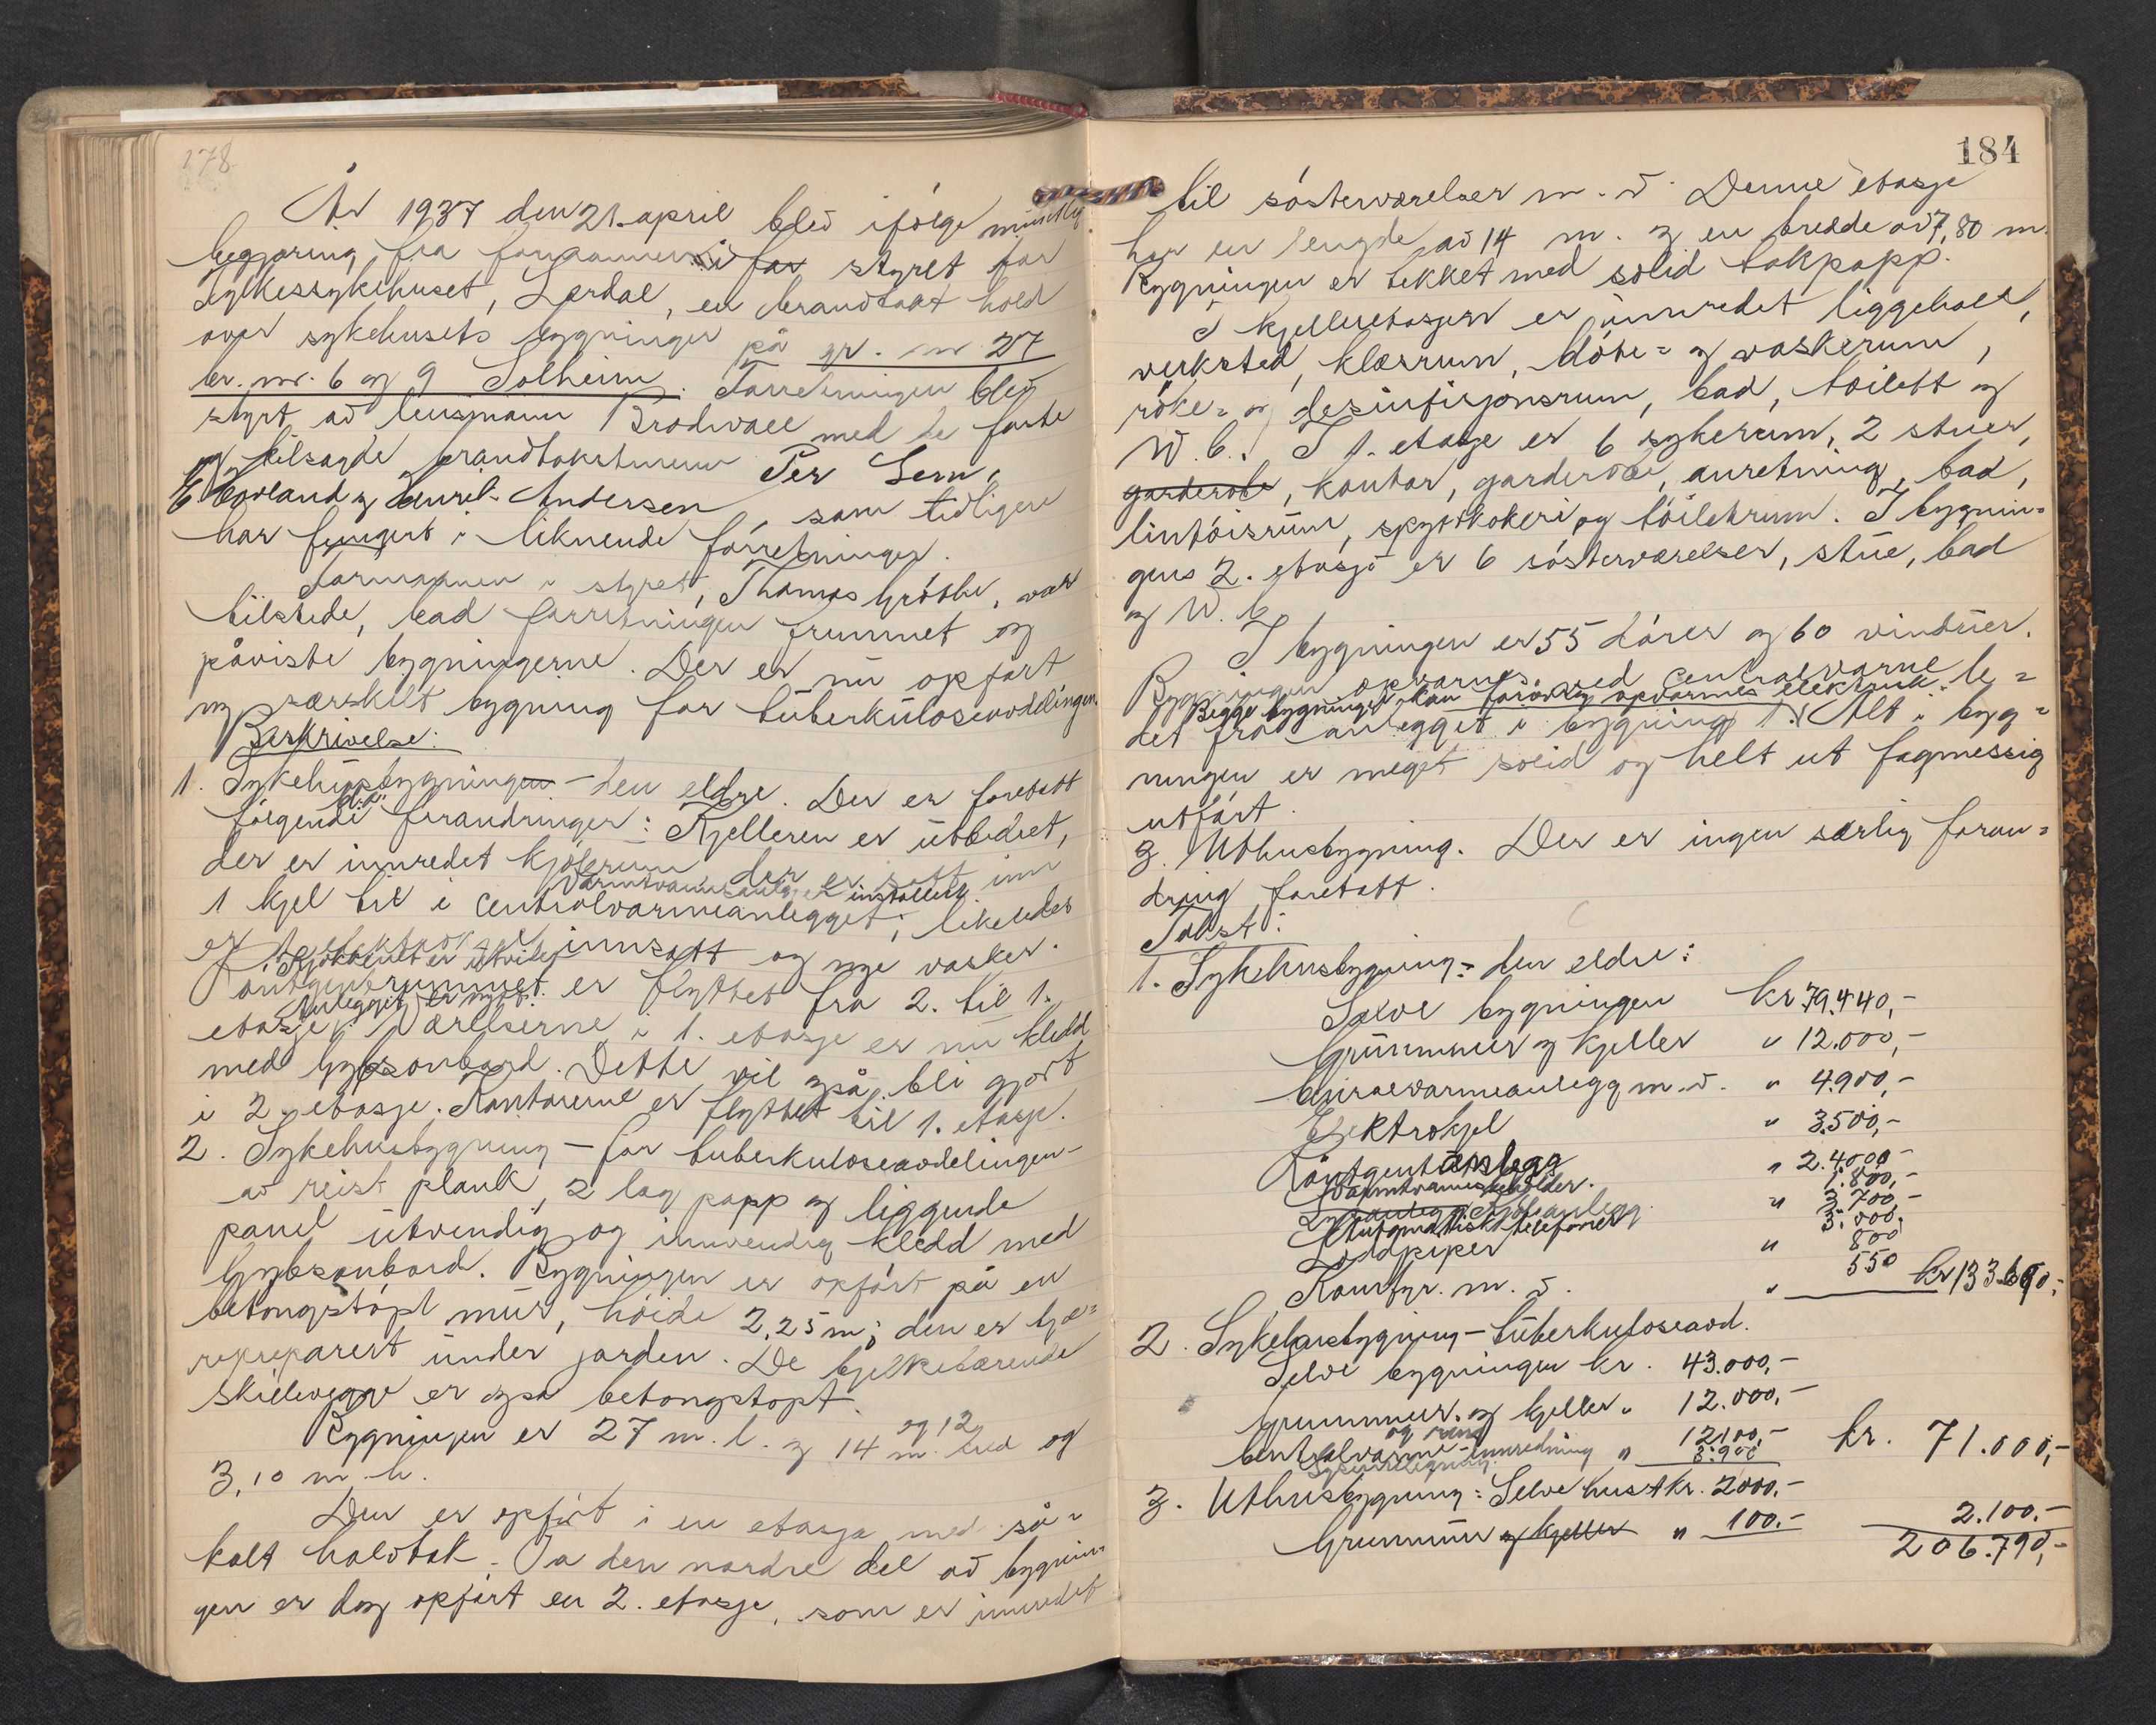 178.
År 1937 den 21. april blev ifölge muntlig
begjæring fra formannen i for styret for
Fylkessykehuset, Lærdal, en brandtakst hold
over sykehusets bygninger på gr. nr. 27
br. nr. 6 og 9 Solheim. Forretningen blev
styrt av lensmann Brodwall med de faste
og tilsagde brandtakstmenn Per Lem,
og Laurits Andersen, som tidligere
har fungert i liknende forretninger.
Formannen i styret, Thomas Gröthe, var
tilstede, bad forretningen fremmet og
påviste bygningerne. Der er nu opfört
ny særskilt bygning for tuberkuloseavdelingen.
Beskrivelse:
1. Sykehusbygningen - den eldre. Der er foretatt
fölgende bl.a. forandringer: Kjelleren er utbedret,
der er innredet kjölerum der er satt inn
Varmtvannsanlegg er installert.
1 kjel til i centralvarmeanlegget; likeledes
er elektrokjel innsatt og nye vasker.
Kjökkenet er utvidet
Röntgenrummet er flyttet fra 2. til 1.
Anlegget er nytt.
etasje. Værelserne i 1. etasje er nu kledd
med Gybsonbord. Dette vil også bli gjort
i 2. etasje. Kontorerne er flyttet til 1. etasje.
2. Sykehusbygning - for tuberkuloseavdelingen -
av reist plank, 2 lag papp og liggende
panel utvendig og innvendig kledd med
Gybsonbord. Bygningen er opfört på en
betongstöpt mur, höide 2,25 m; den er tjæ-
repreparert under jorden. De bjelkebærende
skillevegge er også betongstöpt.
Bygningen er 27 m. l. og 14 og 12 m. bred og
3,10 m. h.
Den er opfört i en etasje med så-
kalt halvtak. På den nordre del av bygnin-
gen er dog opfört en 2. etasje, som er innredet
184
til södsterværelser m. v. Denne etasje
har en lengde av 14 m. og en bredde av 7,80 m.
Bygningen er tekket med solid takpapp.
I kjelleretasjen er innredet liggehall,
verksted, klærrum, döbe- og vaskerum,
röke- og desinfisjonsrum, bad, toilett og
W. C. I 1. etage er 6 sykerum, 2 stuer,
garderobe, kontor, garderobe, anretning, bad,
lintöisrum, spyttkokeri og töiletrum. I bygnin-
gens 2. etasje er 6 sösterværelser, stue, bad
og W. C.
I bygningen er 55 dörer og 60 vinduer.
Bygningen opvarmes ved centralvarme le-
Begge bygninger kan forövrig opvarmes elektrisk.
det fra anlegget i bygning 1. Alt i byg-
ningen er meget solid og helt ut fagmessig
utfört.
3. Uthusbygning. Der er ingen særlig foran-
dring foretatt.
Takst:
1. Sykehusbygning - den eldre:
Selve bygningen kr 79.440,-
Grunnmur og kjeller " 12.000,-
Centralvarmeanlegg m. v. " 4.900,-
Elektrokjel " 3.500,-
Röntgenanlegg " 24.000
Varmtvannsbeholder. 1.800,-
Lysanlegg Kjöleanlegg. " 3.700 -
Automatisk telefoner 3.000.
Loddpiper " 800
Komfyr. m. v. " 550 kr 133.690,-
2. Sykehusbygning - tuberkuloseavd.
Selve bygningen kr. 43.000,-
Grunnmur. og kjeller " 12.000,-
Centralvarme - innredning " 12.100,-
3.900 kr. 71.000,-
3. Uthusbygning: Selve huset kr. 2000.-
Grunnmur og kjeller " 100.- 2.100.-
206.790,-